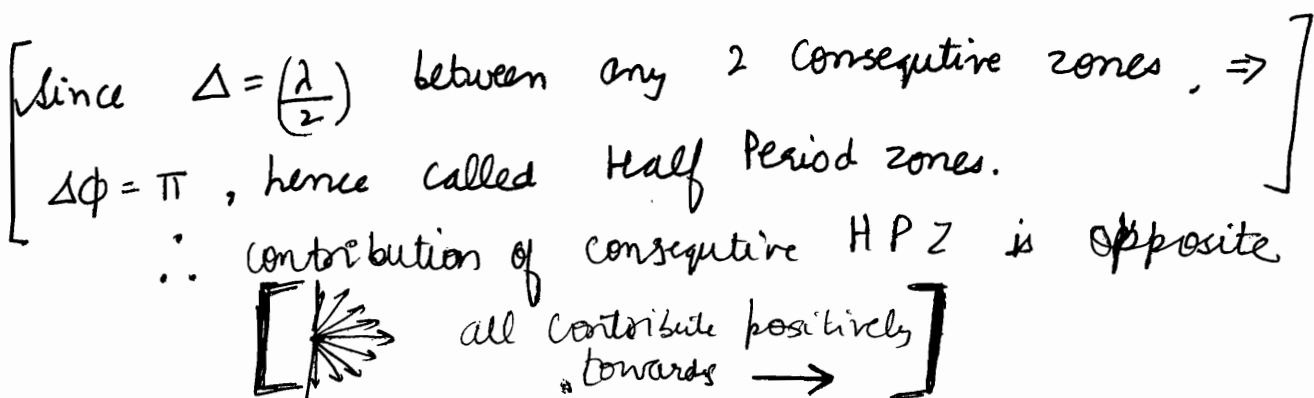 [Since Δ = (λ/2) between any 2 consequtive zones, ⇒
Δϕ = π, hence called Half Period zones.]
∴ contribution of consequtive H P Z is opposite
[ all contribute positively
towards → ]